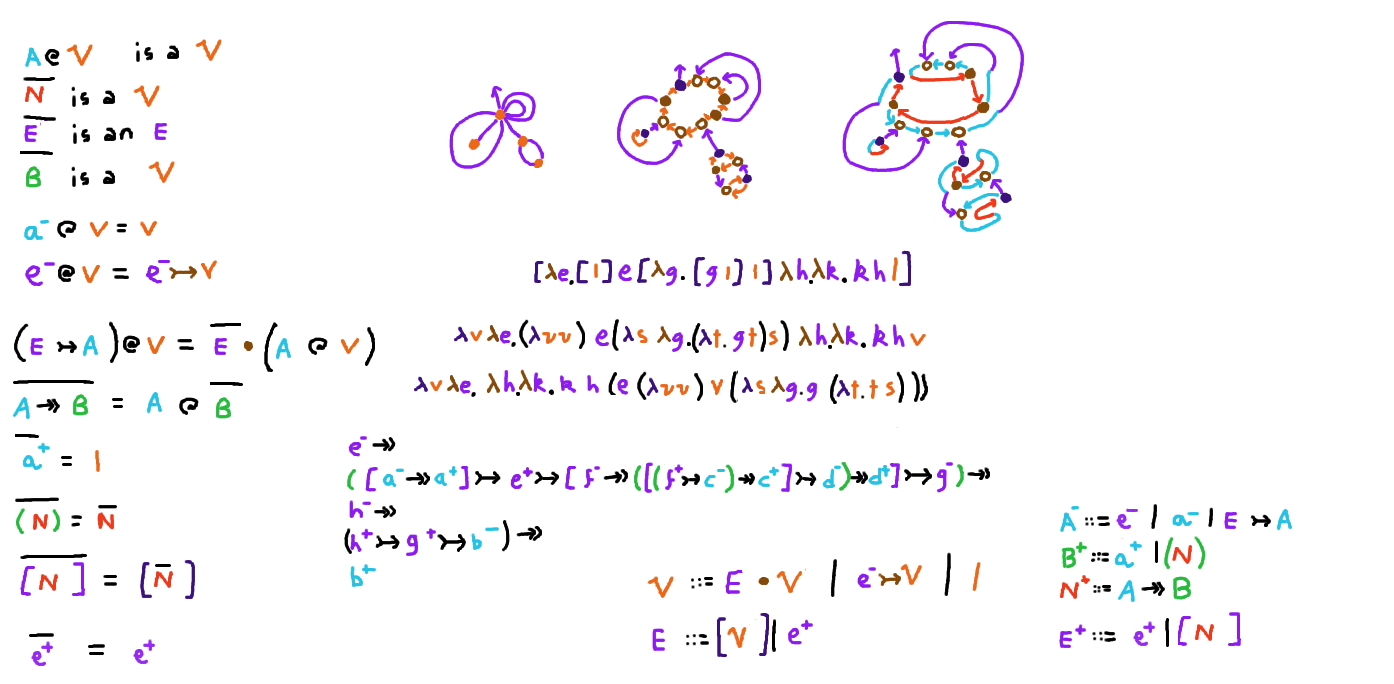 A@V is a V
N̅ is a V
E̅ is an E
B̅ is a V
a⁻ @ V = V
e⁻@V = e⁻↣V
(E ↣ A)@V = E̅ • (A @ V)
A̅ ̅↠̅ ̅B̅ = A @ B̅
a̅⁺̅ = 1
(̅N̅)̅ = N̅
[̅N̅]̅ = [N̅]
e̅⁺̅ = e⁺
[λe.[1]e[λg.[g1]1]λh.λk.kh1]
λvλe.(λvv) e(λs λg.(λt.gt)s) λh.λk.khv
λvλe. λh.λk.k h (e (λvv) v (λsλg.g (λt.t s)))
e⁻↠
([a⁻↠a⁺]↣e⁺↣[f⁻↠([(f⁺↣c⁻)↠c⁺]↣d⁻)↠d⁺]↣g⁻)↠
h⁻↠
(h⁺↣g⁺↣b⁻)↠
b⁺
V ::= E • V | e⁻↣V | 1
E ::= [V] | e⁺
A⁻::= e⁻ | a⁻ | E ↣ A
B⁺::= a⁺ | (N)
N⁺::= A ↠ B
E⁺::= e⁺ | [N]